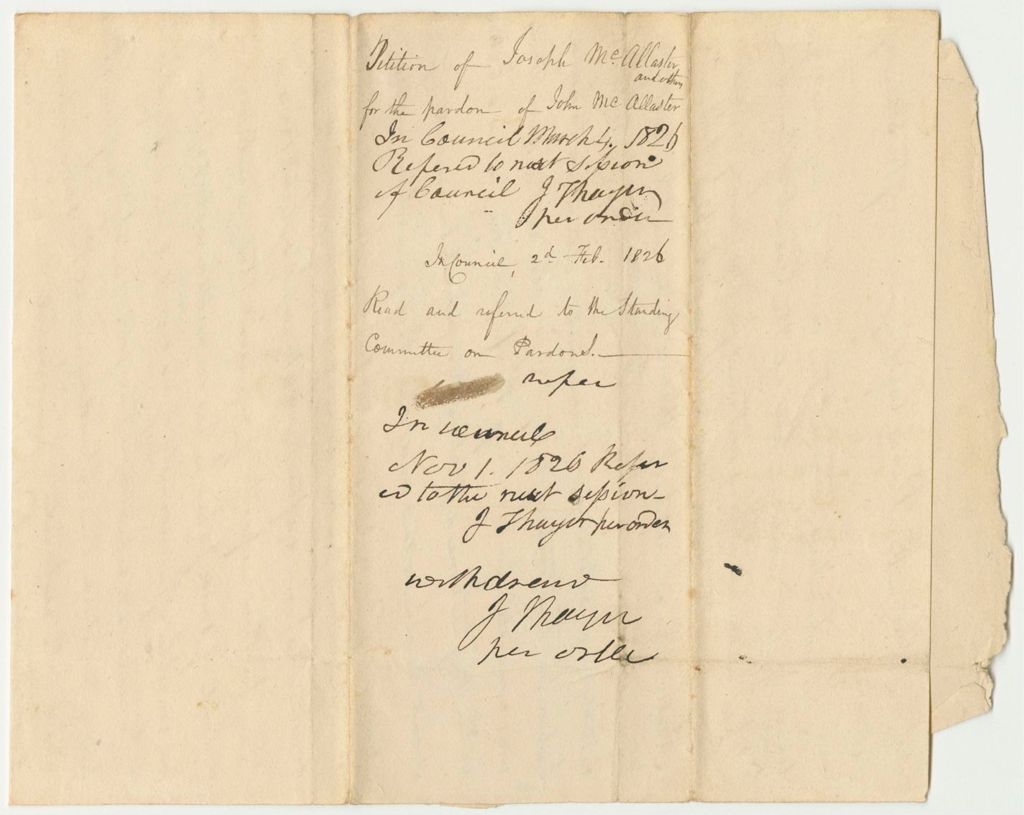 Petition of Joseph Mc Allaster
and others
for the pardon of John Mc Allaster
In Council March 4. 1826
Refered to next session
of Council J Thayer
per order
In Council, 2d Feb. 1826
Read and referred to the Standing
Committee on Pardons.
In council
Nov 1. 1826 Refer
ed to the next session
J Thayer per order
withdrawn
J Thayer
per order